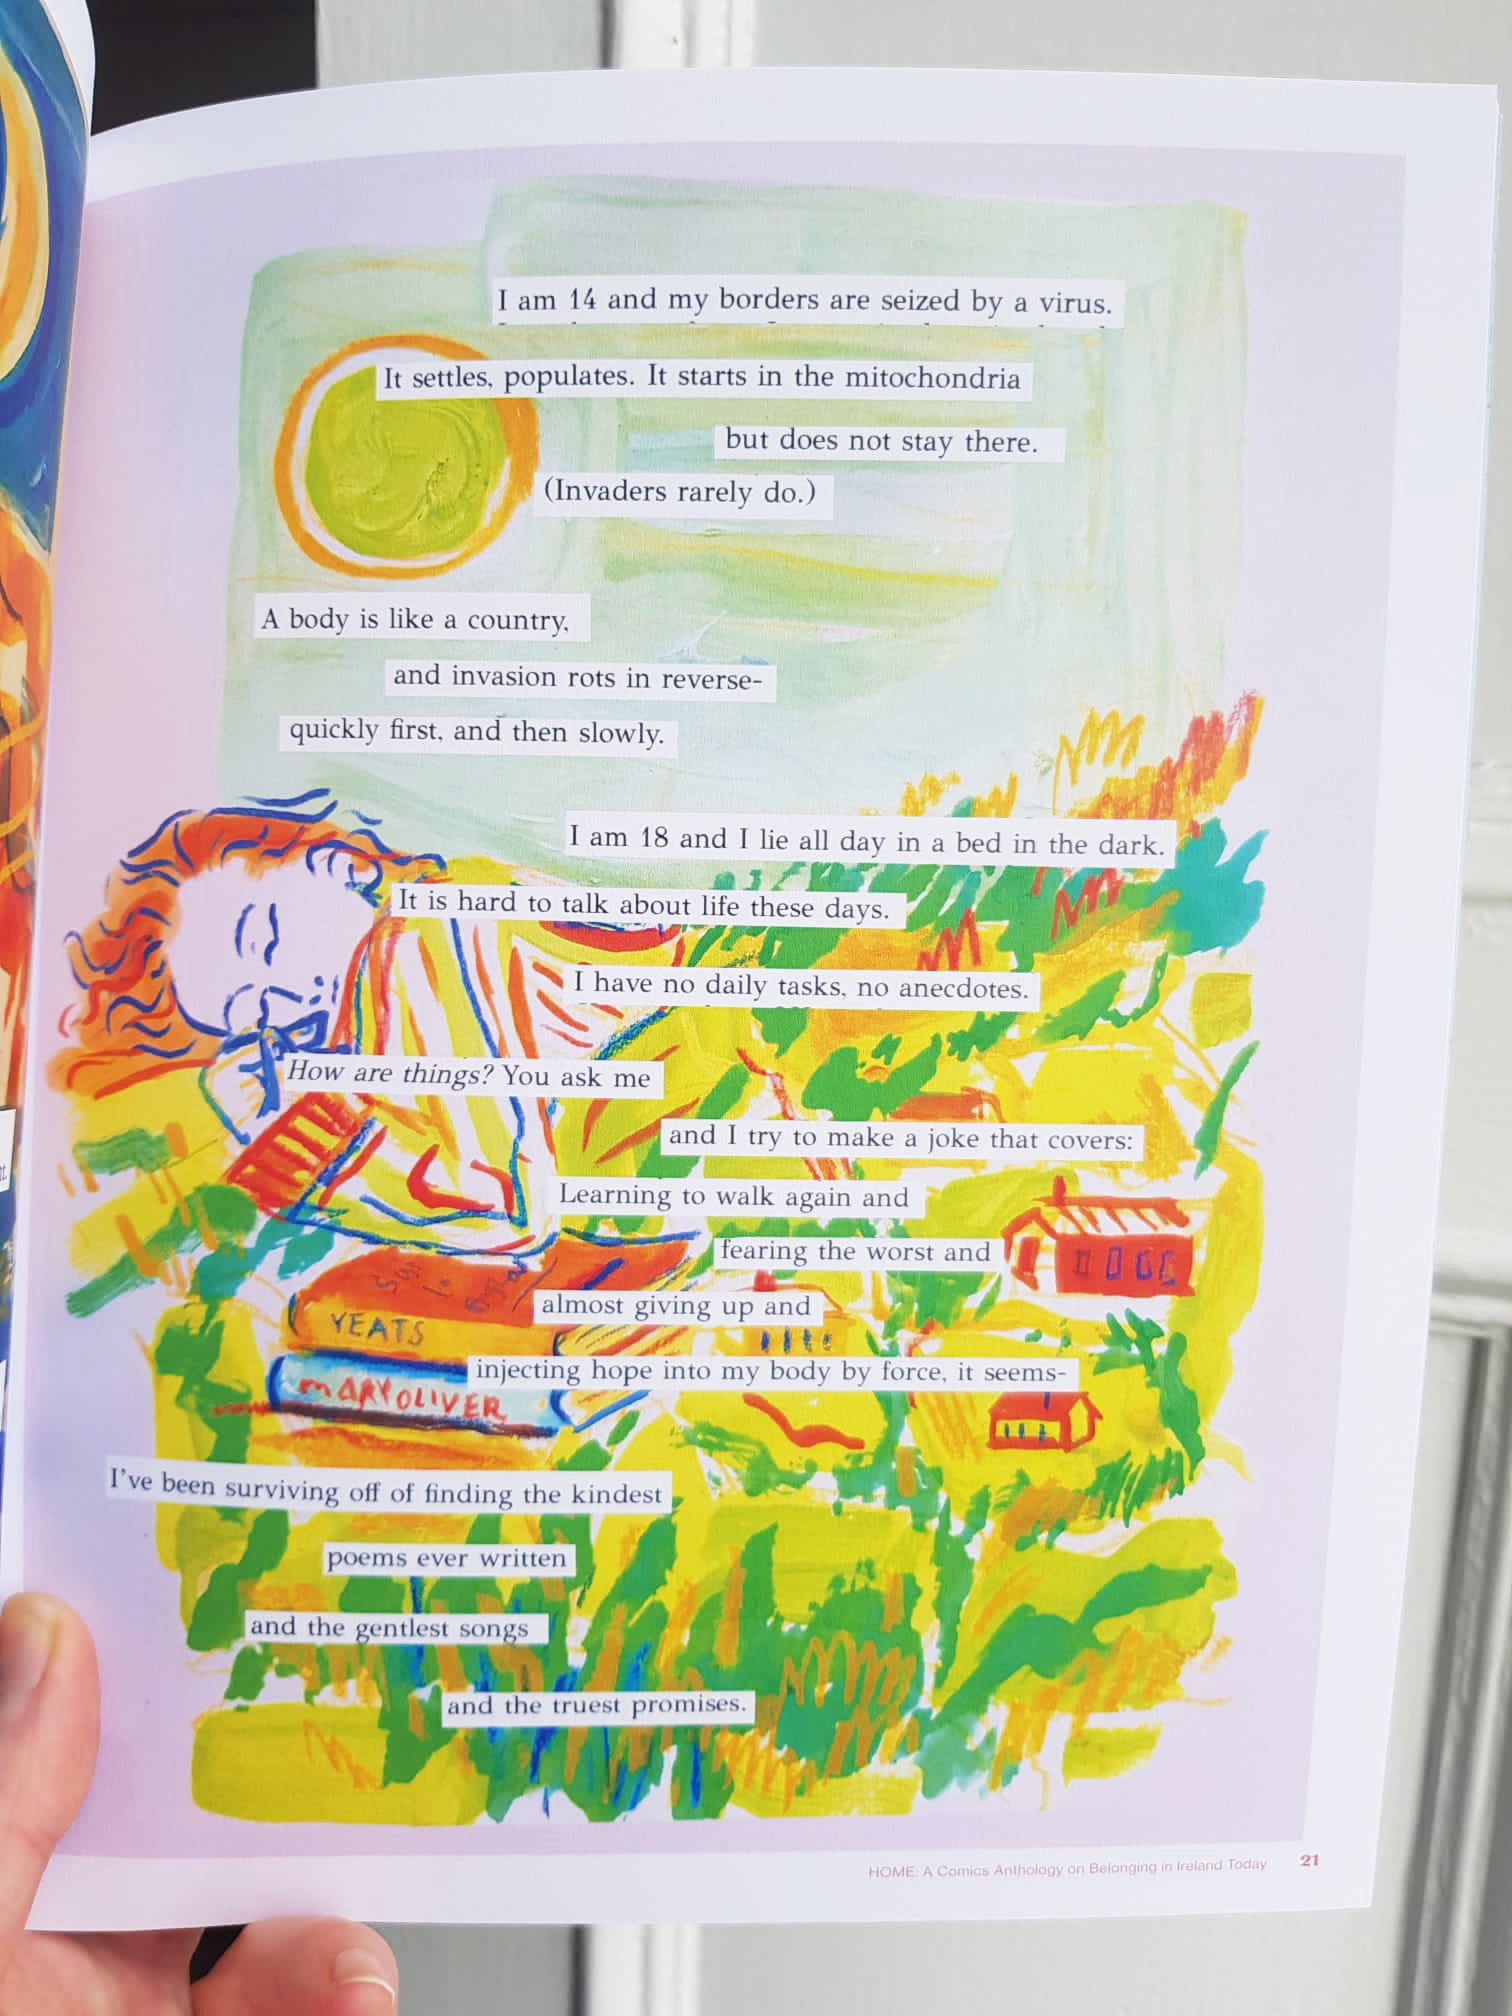 I am 14 and my borders are seized by a virus.
It settles, populates. It starts in the mitochondria
but does not stay there.
(Invaders rarely do.)
A body is like a country,
and invasion rots in reverse-
quickly first, and then slowly.
I am 18 and I lie all day in a bed in the dark.
It is hard to talk about life these days.
I have no daily tasks, no anecdotes.
How are things? You ask me
and I try to make a joke that covers:
Learning to walk again and
fearing the worst and
almost giving up and
YEATS
injecting hope into my body by force, it seems-
MARY OLIVER
I've been surviving off of finding the kindest
poems ever written
and the gentlest songs
and the truest promises.
HOME: A Comics Anthology on Belonging in Ireland Today 21